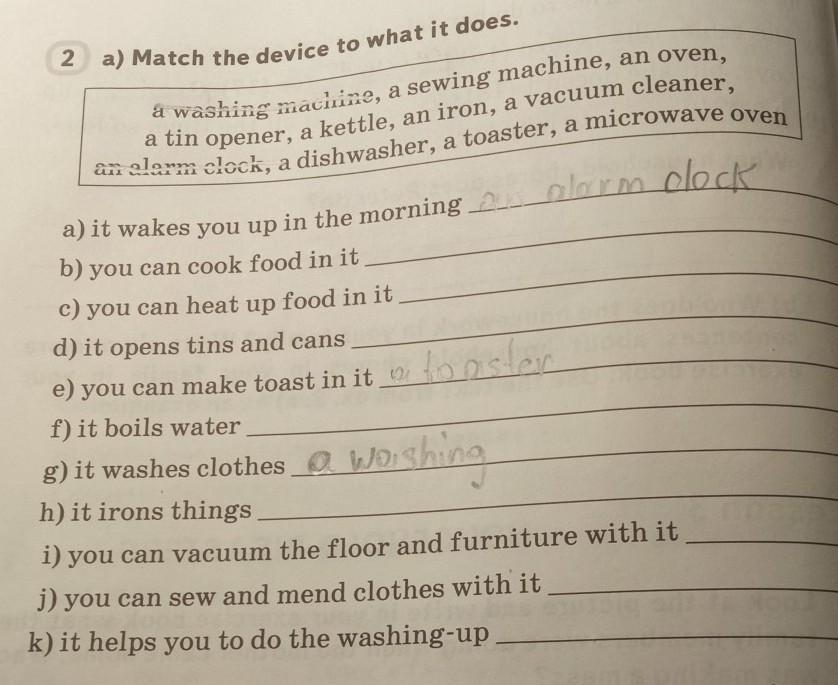 2 a) Match the device to what it does.
a washing machine, a sewing machine, an oven,
a tin opener, a kettle, an iron, a vacuum cleaner,
an alarm clock, a dishwasher, a toaster, a microwave oven
a) it wakes you up in the morning an alarm clock
b) you can cook food in it
c) you can heat up food in it
d) it opens tins and cans
e) you can make toast in it a toaster
f) it boils water
g) it washes clothes a washing
h) it irons things
i) you can vacuum the floor and furniture with it
j) you can sew and mend clothes with it
k) it helps you to do the washing-up